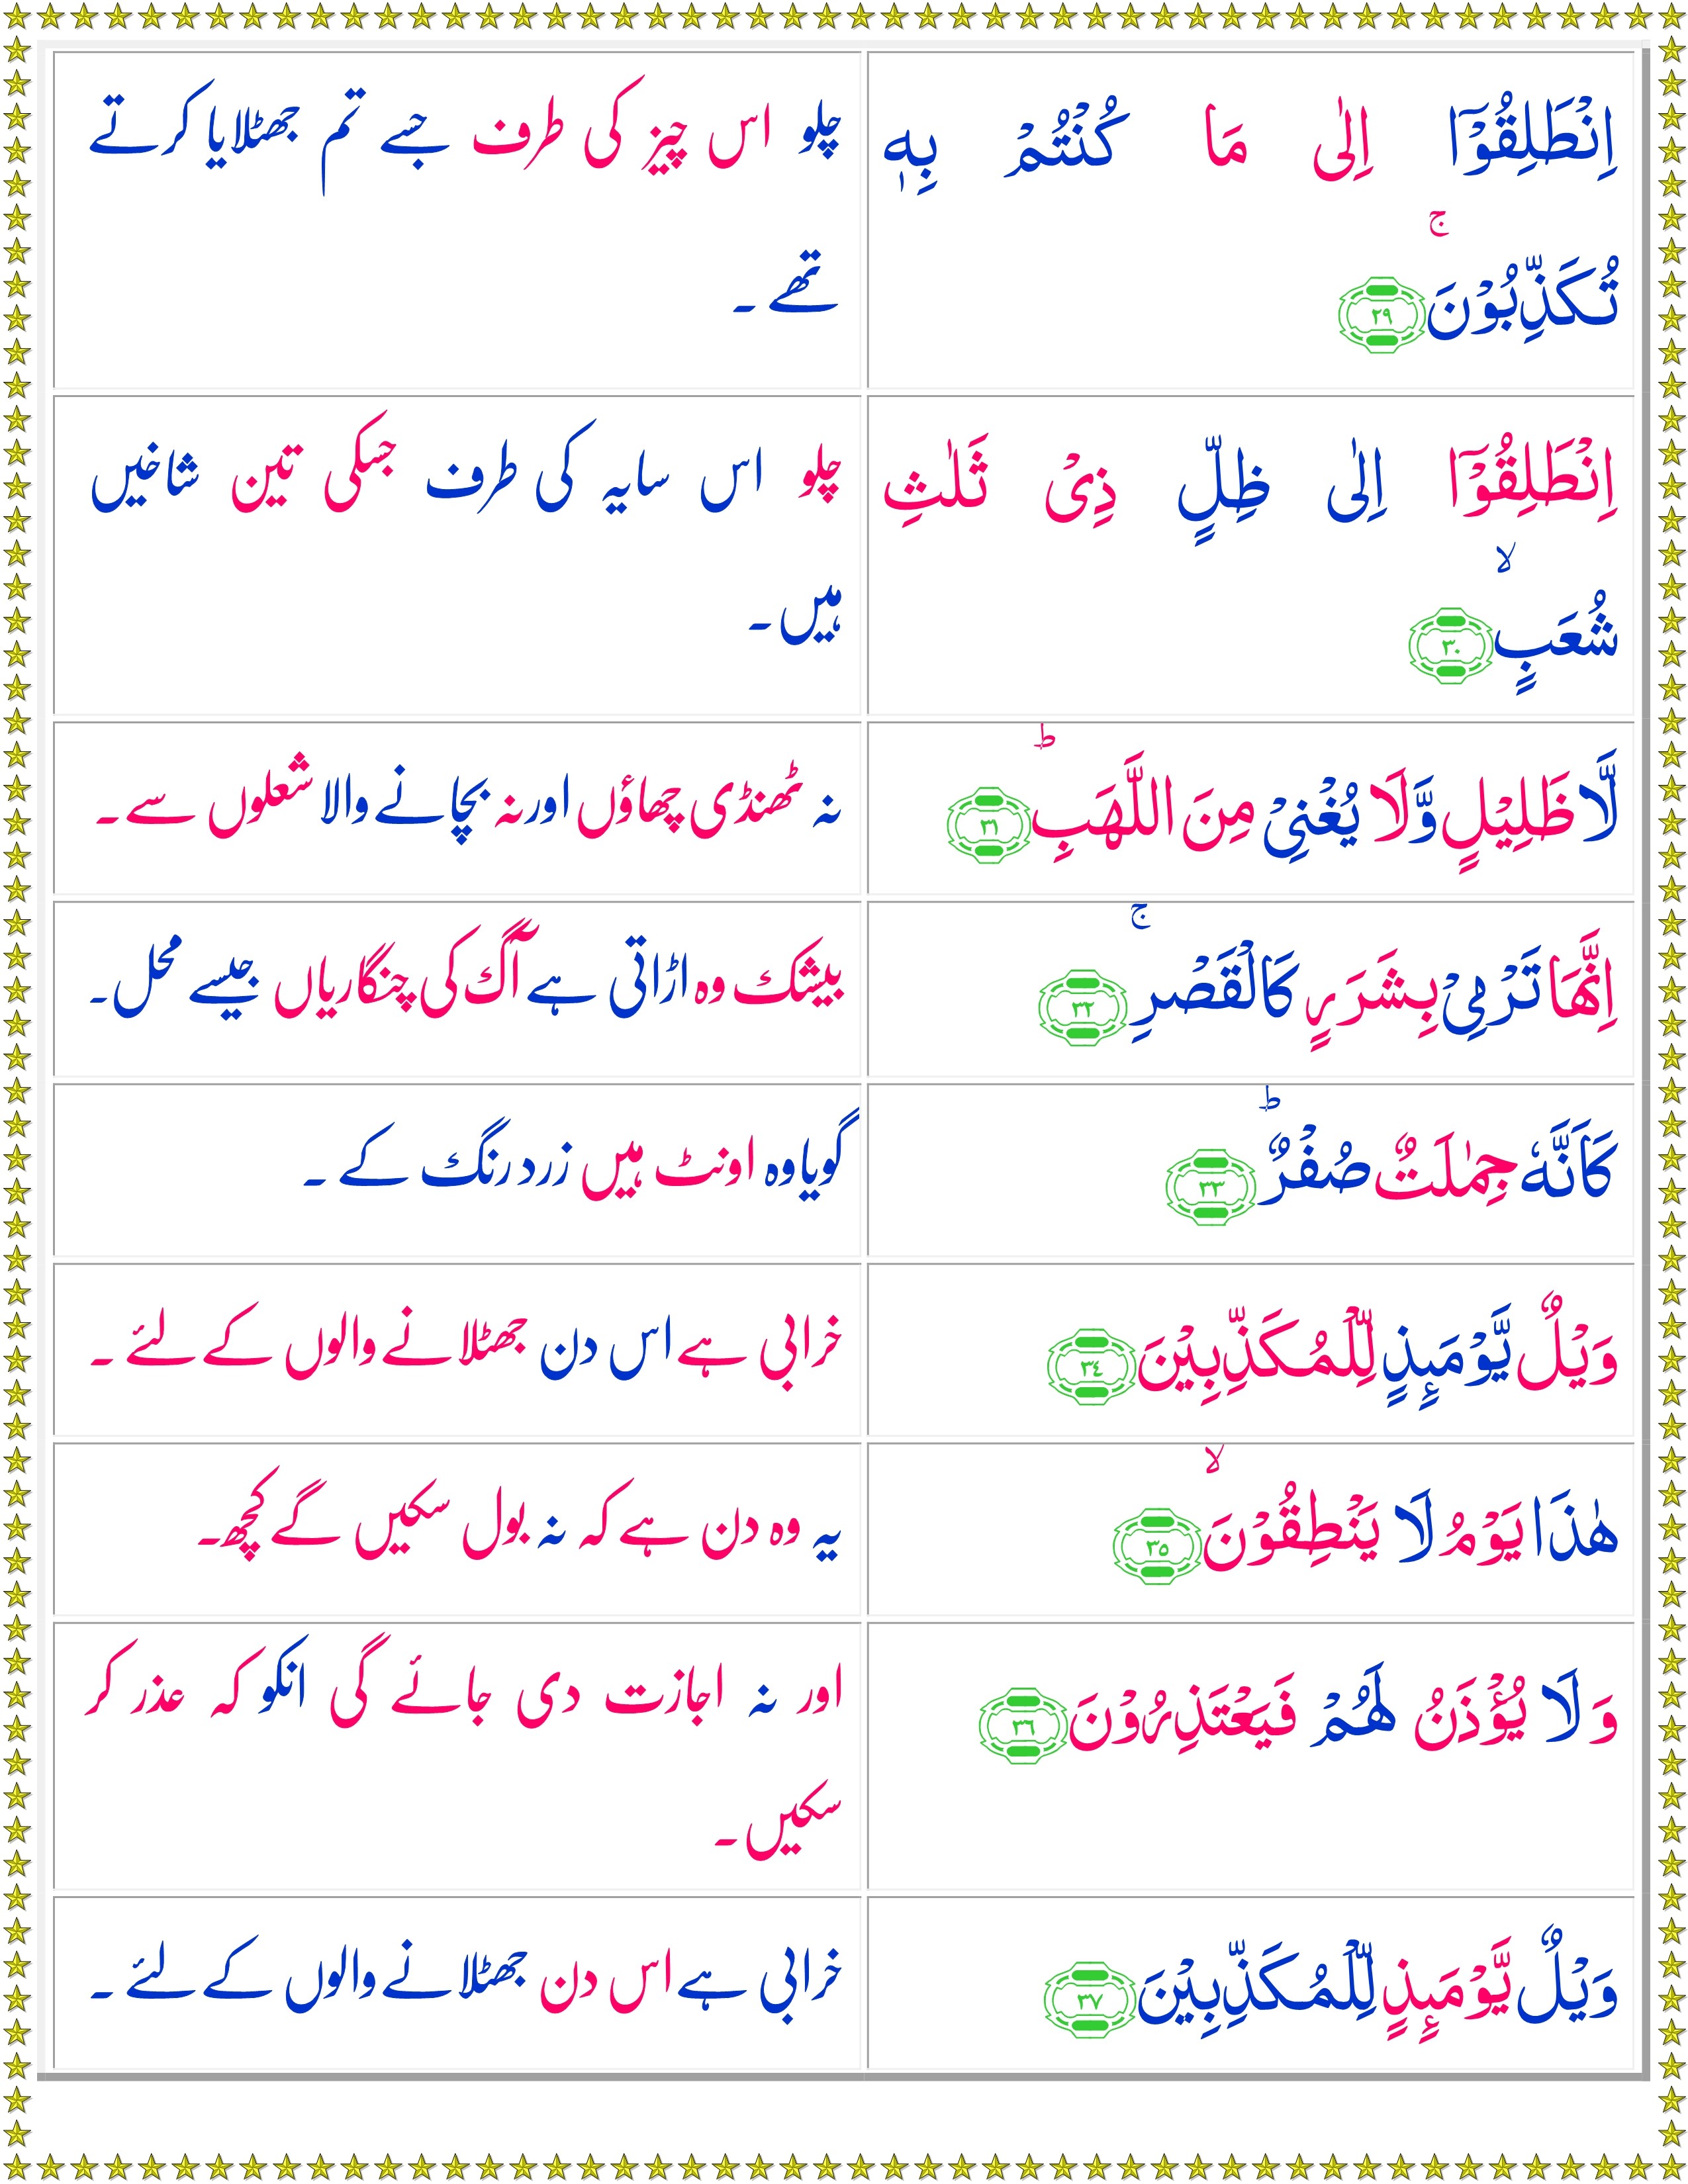 اِنْطَلِقُوْۤا اِلٰى مَا كُنْتُمْ بِهٖ
تُكَذِّبُوْنَۚ ﴿۲۹﴾
چلو اس چیز کی طرف جسے تم جھٹلایا کرتے
تھے ۔
اِنْطَلِقُوْۤا اِلٰى ظِلٍّ ذِىْ ثَلٰثِ
شُعَبٍۙ ﴿۳۰﴾
چلو اس سایہ کی طرف جسکی تین شاخیں
ہیں ۔
لَّا ظَلِيْلٍ وَّلَا يُغْنِىْ مِنَ اللَّهَبِؕ ﴿۳۱﴾
نہ ٹھنڈی چھاؤں اور نہ بچانے والا شعلوں سے ۔
اِنَّهَا تَرْمِىْ بِشَرَرٍ كَالْقَصْرِۚ ﴿۳۲﴾
بیشک وہ اڑاتی ہے آگ کی چنگاریاں جیسے محل ۔
كَاَنَّهٗ جِمٰلَتٌ صُفْرٌؕ ﴿۳۳﴾
گویا وہ اونٹ ہیں زرد رنگ کے ۔
وَيْلٌ يَّوْمَٮِٕذٍ لِّلْمُكَذِّبِيْنَ ﴿۳۴﴾
خرابی ہے اس دن جھٹلانے والوں کے لئے ۔
هٰذَا يَوْمُ لَا يَنْطِقُوْنَۙ ﴿۳۵﴾
یہ وہ دن ہے کہ نہ بول سکیں گے کچھ ۔
وَلَا يُؤْذَنُ لَهُمْ فَيَعْتَذِرُوْنَ ﴿۳۶﴾
اور نہ اجازت دی جائے گی انکو کہ عذر کر
سکیں ۔
وَيْلٌ يَّوْمَٮِٕذٍ لِّلْمُكَذِّبِيْنَ ﴿۳۷﴾
خرابی ہے اس دن جھٹلانے والوں کے لئے ۔